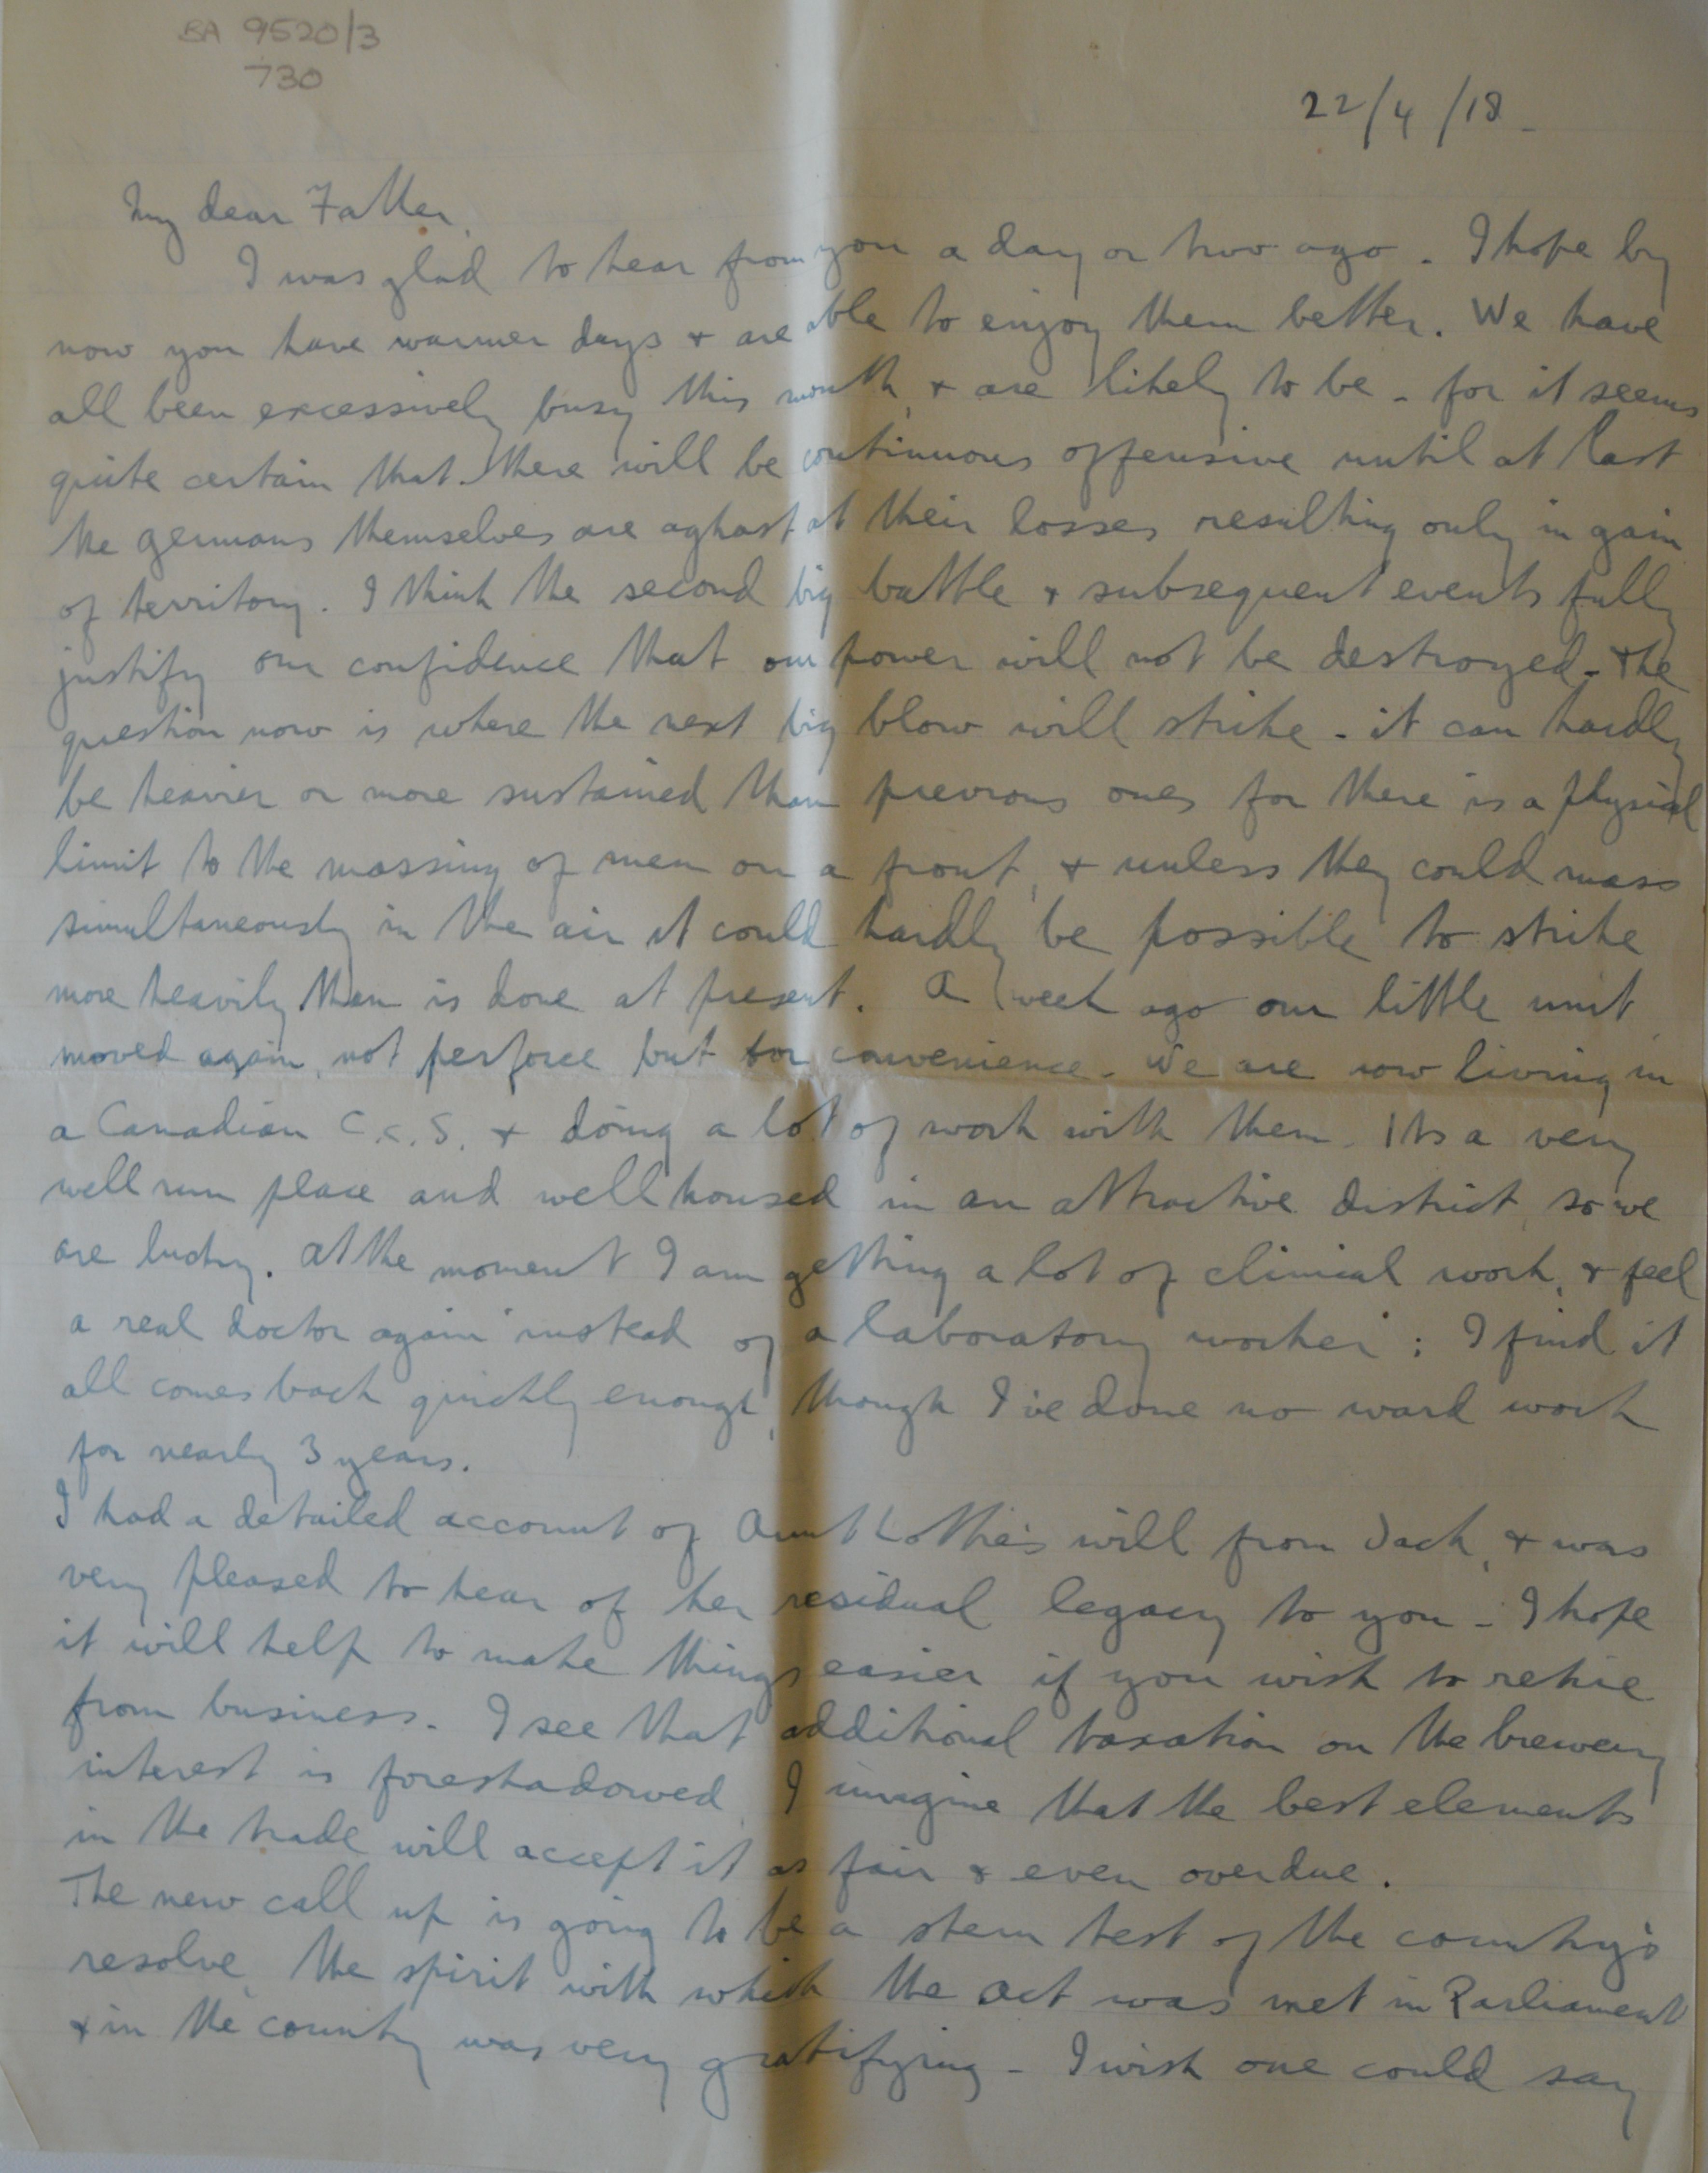 BA 9520/3
730
22/4/18
My dear Father,
I was glad to hear from you a day or two ago. I hope by
now you have warmer days + are able to enjoy them better. We have
all been excessively busy this month, + are likely to be - for it seems
quite certain that there will be continuous offensive until at last
the germans themselves are aghast at their losses resulting only in gain
of territory. I think the second big battle + subsequent events fully
justify our confidence that our power will not be destroyed - the
question now is where the next big blow will strike - it can hardly
be heavier or more sustained than previous ones for there is a physical
limit to the massing of men on a front, + unless they could mass
simultaneously in the air it could hardly be possible to strike
more heavily than is done at present. A week ago our little unit
moved again, not perforce but for convenience. We are now living in
a Canadian C.C.S. + doing a lot of work with them. Its a very
well run place and well housed in an attractive district, so we
are lucky. At the moment I am getting a lot of clinical work, + feel
a real doctor again instead of a laboratory worker: I find it
all comes back quickly enough, though I've done no ward work
for nearly 3 years.
I had a detailed account of Aunt Lottie's will from Jack, + was
very pleased to hear of her residual legacy to you - I hope
it will help to make things easier if you wish to retire
from business. I see that additional taxation on the brewery
interest is foreshadowed, I imagine that the best elements
in the trade will accept it as fair + even overdue.
The new call up is going to be a stern test of the country's
resolve, the spirit with which the Act was met in Parliament
+ in the country was very gratifying - I wish one could say